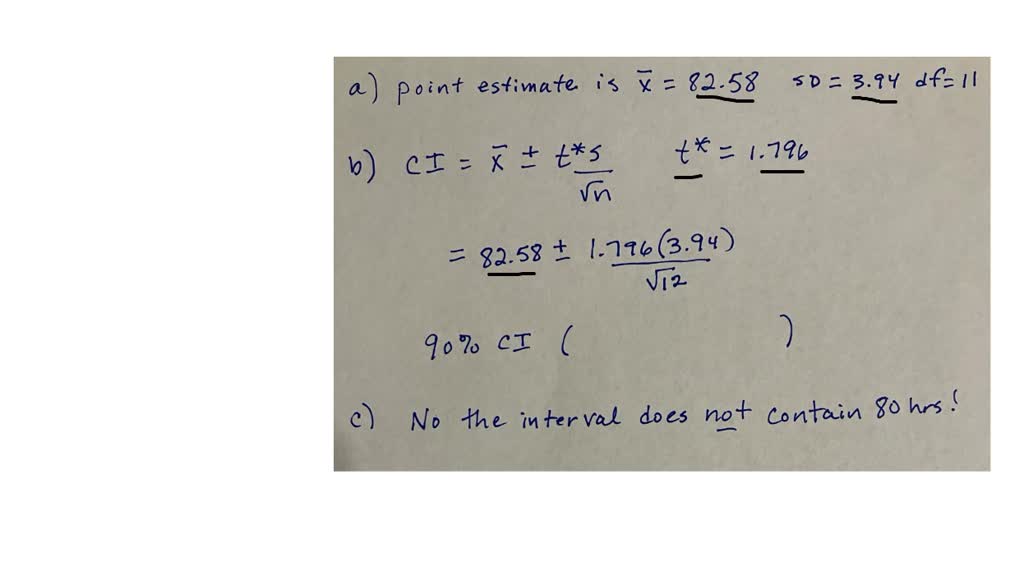 a) point estimate is x̄ = 82.58 SD = 3.94 df=11
b) CI = x̄ ± t*s/√n t* = 1.796
= 82.58 ± 1.796(3.94)/√12
90% CI ( )
c) No the interval does not contain 80 hrs!